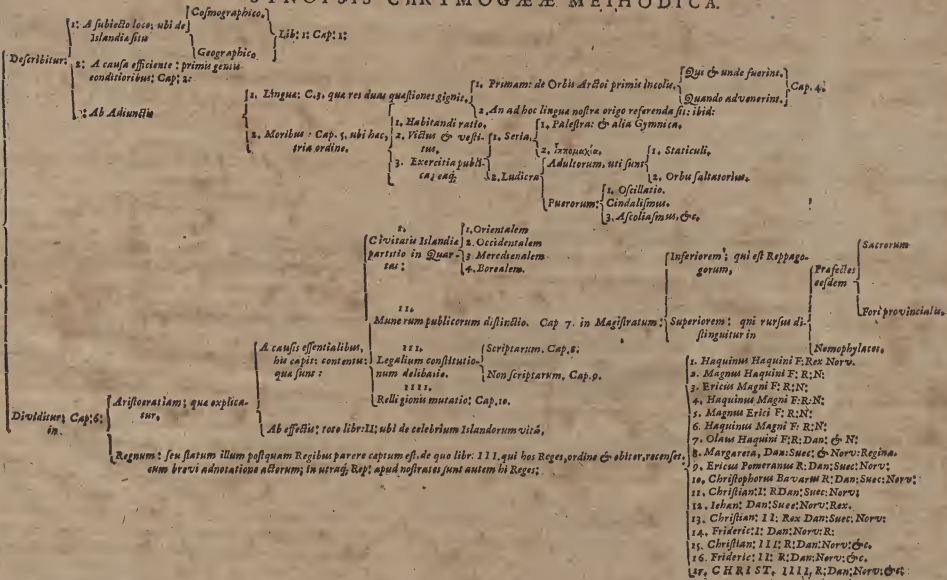 SYNOPSIS CRYMOGÆÆ METHODICA.
Describitur:
1: A subiecto loco; ubi de
Islandiæ situ
Cosmographico.
Geographico
Lib: 1: Cap: 1:
2: A causa efficiente: primis gentis
conditioribus; Cap; 2:
3: Ab Adiunctis
1. Lingua: C.3. quæ res duas quæstiones gignit,
1. Primam: de Orbis Arctoi primis Incolis,
Qui & unde fuerint.
Quando advenerint.
Cap. 4.
2. An ad hoc lingua nostra origo referenda sit: ibid:
2. Moribus: Cap. 5. ubi hæc,
tria ordine.
1. Habitandi ratio.
2. Victus & vesti-
tus.
3. Exercitia publi-
ca; eaq;
1. Seria.
1. Palestra: & alia Gymnica.
2. Ἱππομαχία.
2. Ludicra
Adultorum, uti sunt
1. Staticuli.
2. Orbis saltatorius.
Puerorum:
1. Oscillatio.
Cindalismus.
3. Ascoliasmus, &c.
Dividitur; Cap:6:
in
Aristocratiam; quæ explica-
tur,
A causis essentialibus,
his capit: contentis:
quæ sunt:
1.
Civitatis Islandiæ
partitio in Quar-
tas:
1. Orientalem
2. Occidentalem
3 Meredienalem
4. Borealem.
11.
Munerum publicorum distinctio. Cap 7. in Magistratum:
Inferiorem; qui est Reppago-
gorum,
Superiorem; qui rursus di-
stinguitur in
Præfectos
eosdem
Sacrorum
Fori provincialis.
Nomophylates.
111.
Legalium constitutio-
num delibatio.
Scriptarum. Cap.8:
Non scriptarum, Cap.9.
1111.
Relligionis mutatio; Cap.10.
Ab effectis; toto libr:II; ubi de celebrium Islandorum vitâ,
Regnum: seu statum illum postquam Regibus parere captum est. de quo libr: 111. qui hos Reges, ordine & obiter, recenset.
cum brevi adnotatione actorum; in utraq; Rep: apud nostrates; sunt autem hi Reges;
1. Haquinus Haquini F: Rex Norv.
2. Magnus Haquini F: R:N:
3. Ericus Magni F: R:N:
4. Haquinus Magni F: R:N:
5. Magnus Erici F: R:N:
6. Haquinus Magni F: R:N:
7. Olaus Haquini F:R: Dan: & N:
8. Margareta, Dan: Suec: & Norv: Regina.
9. Ericus Pomeranus R: Dan: Suec: Norv:
10. Christophorus Bavarus R: Dan: Suec: Norv:
11. Christian: I: R Dan: Suec: Norv:
12. Iohan: Dan: Suec: Norv: Rex.
13. Christian: II: Rex Dan: Suec: Norv:
14. Frideric: I: Dan: Norv: R:
15. Christian: III: R: Dan: Norv: &c.
16. Frideric: II: R: Dan: Norv: &c.
17. CHRIST. IIII, R: Dan: Norv: &c: